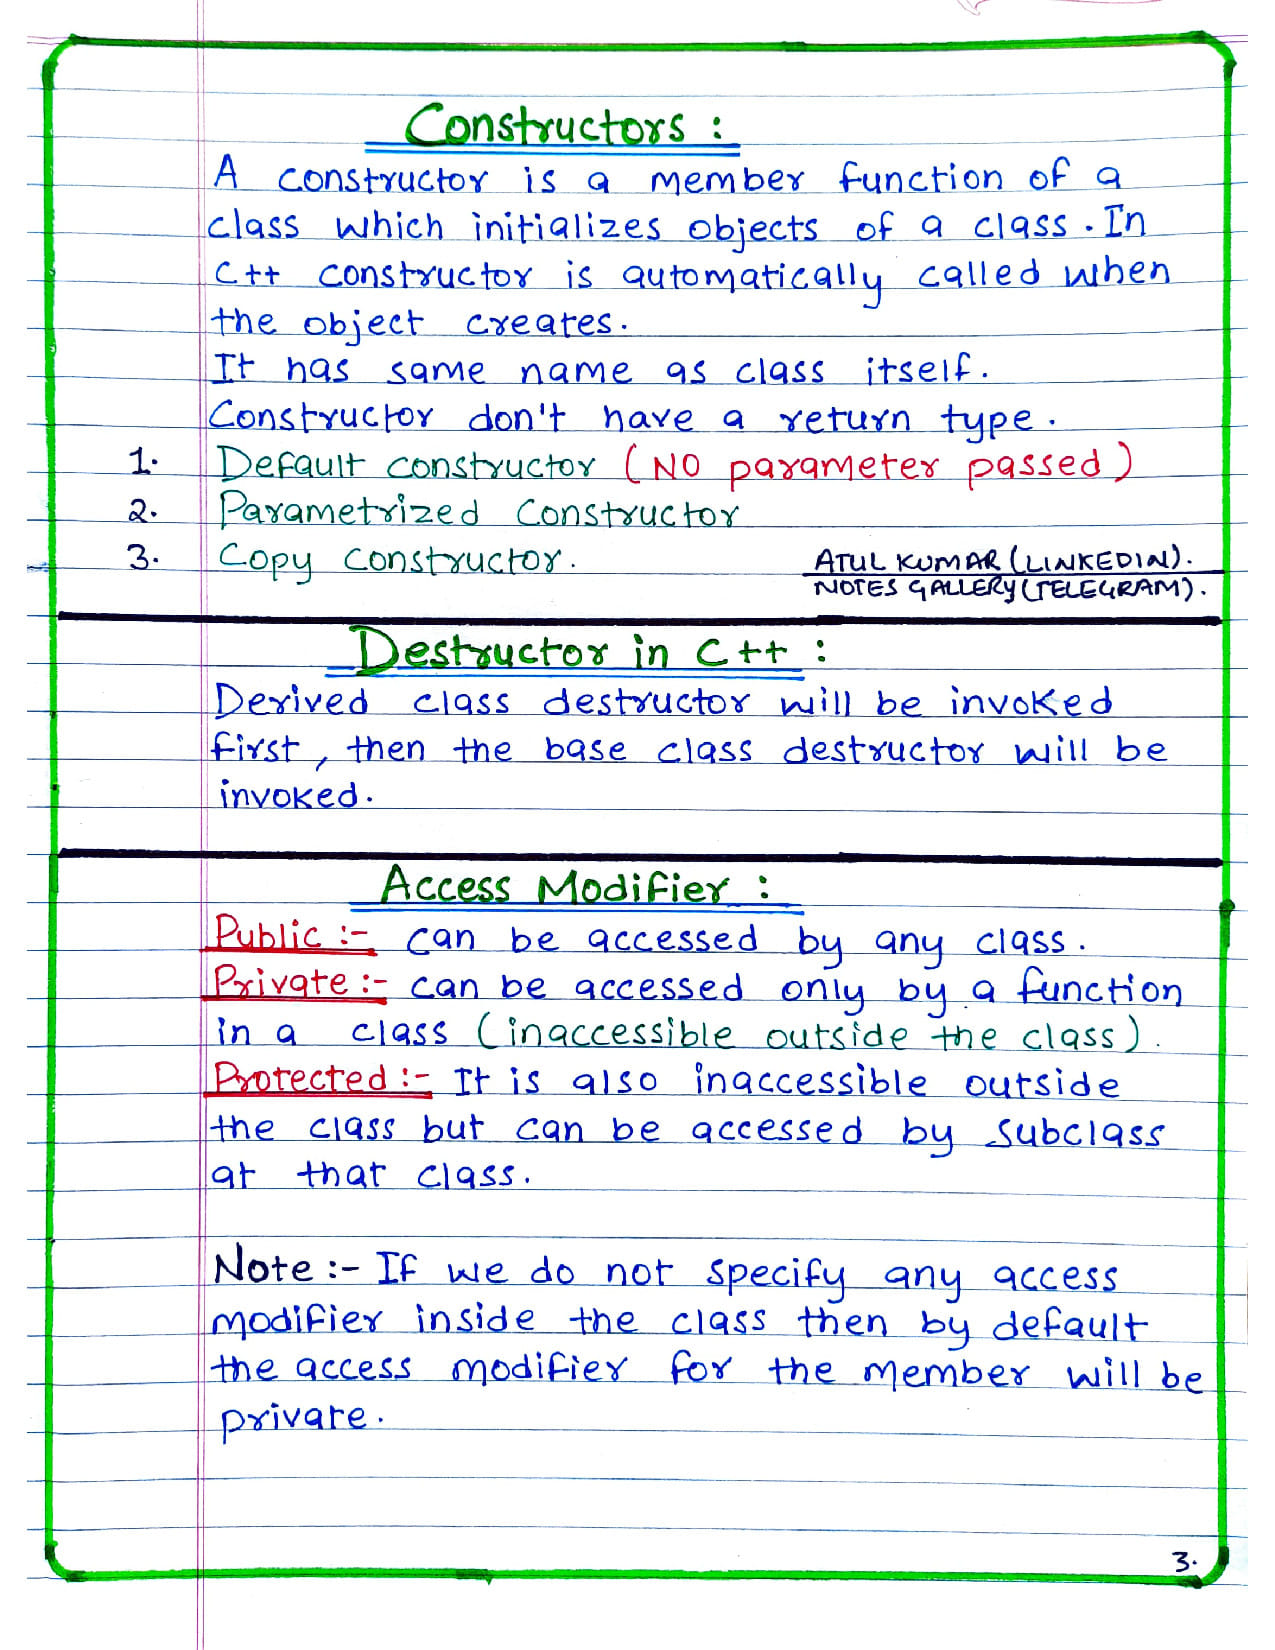 Constructors :
A constructor is a member function of a
class which initializes objects of a class. In
C++ constructor is automatically called when
the object creates.
It has same name as class itself.
Constructor don't have a return type.
1. Default constructor (NO parameter passed)
2. Parametrized constructor
3. Copy constructor.
ATUL KUMAR (LINKEDIN).
NOTES GALLERY (TELEGRAM).
Destructor in C++ :
Derived class destructor will be invoked
first, then the base class destructor will be
invoked.
Access Modifier :
Public :- can be accessed by any class.
Private :- can be accessed only by a function
in a class (inaccessible outside the class).
Protected :- It is also inaccessible outside
the class but can be accessed by subclass
at that class.
Note :- If we do not specify any access
modifier inside the class then by default
the access modifier for the member will be
private.
3.